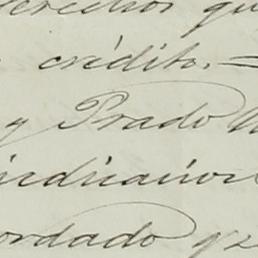 derechos que
crédito. =
y Prado
indicaciones
ordado y